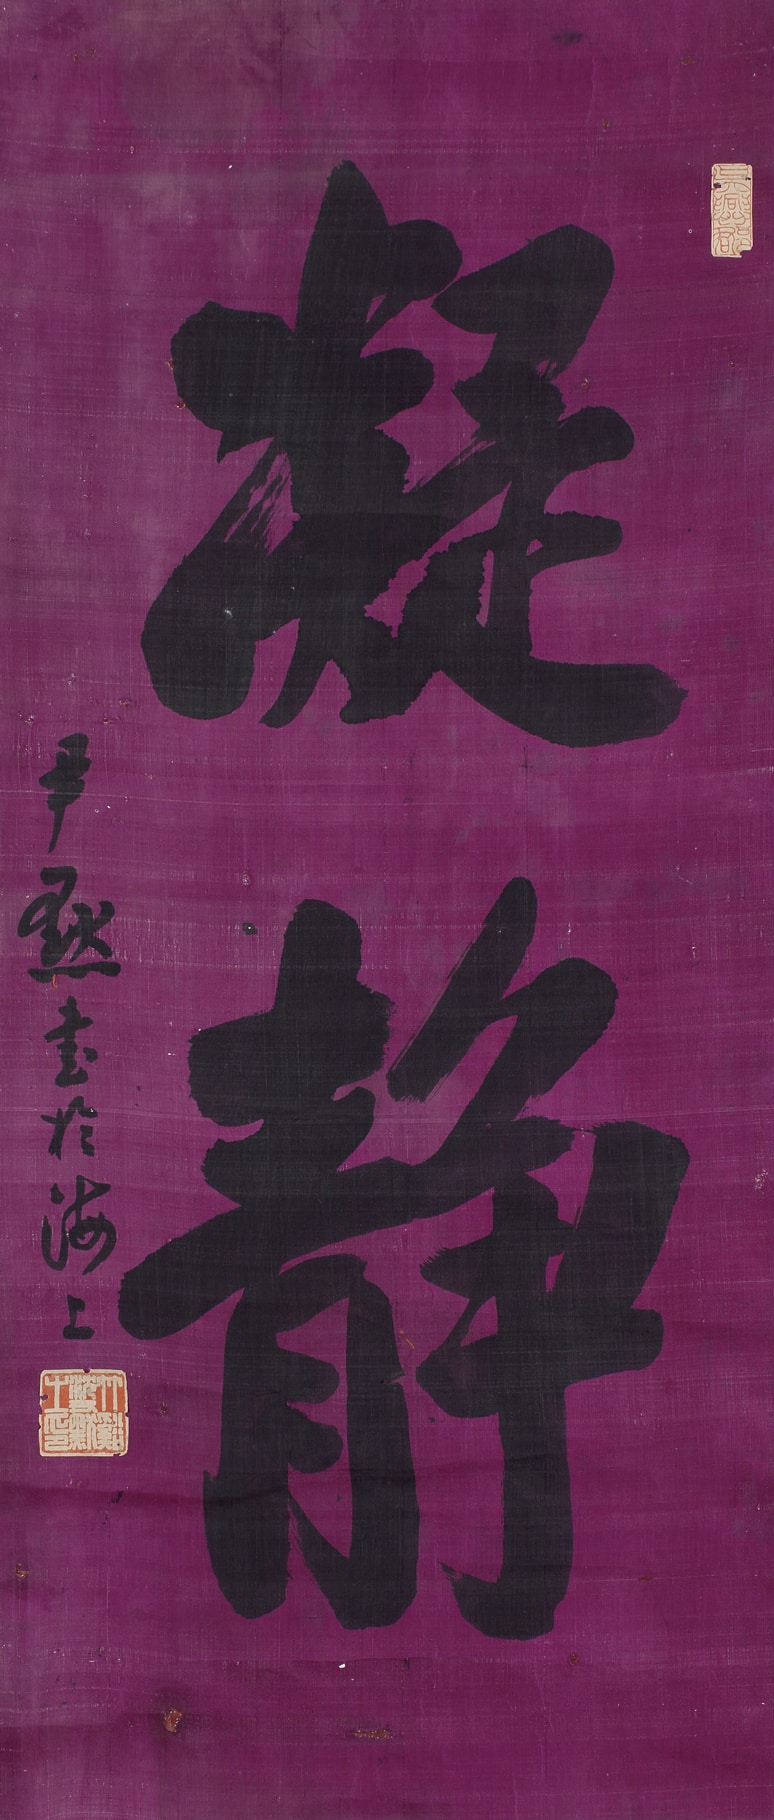 凝
靜
尹默書於海上